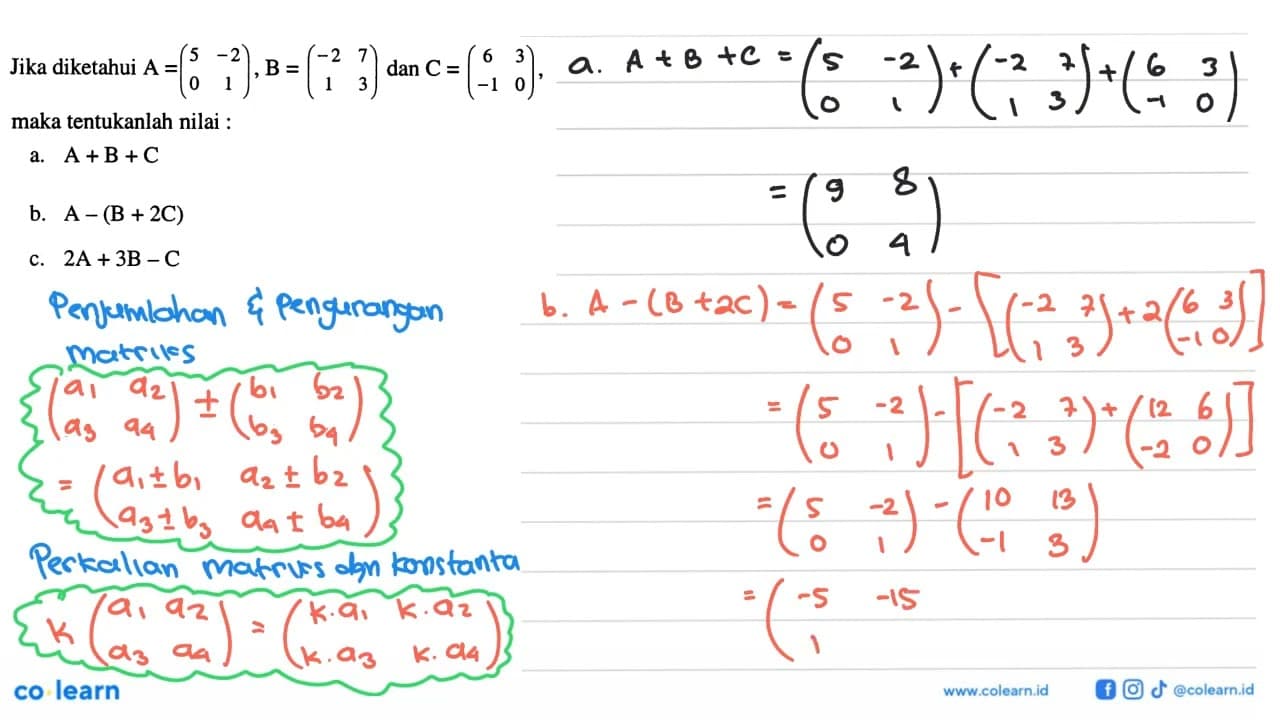 Jika diketahui A = (5 -2 0 1), B = (-2 7 1 3) dan C = (6 3 -1 0),
maka tentukanlah nilai :
a. A + B + C
b. A – (B + 2C)
c. 2A + 3B – C
Penjumlahan & Pengurangan
matriks
(a1 a2 a3 a4) ± (b1 b2 b3 b4)
= (a1 ± b1 a2 ± b2 a3 ± b3 a4 ± b4)
Perkalian matriks dgn konstanta
k (a1 a2 a3 a4) = (k.a1 k.a2 k.a3 k.a4)
a. A + B + C = (5 -2 0 1) + (-2 7 1 3) + (6 3 -1 0)
= (9 8 0 4)
b. A - (B + 2C) = (5 -2 0 1) - [(-2 7 1 3) + 2(6 3 -1 0)]
= (5 -2 0 1) - [(-2 7 1 3) + (12 6 -2 0)]
= (5 -2 0 1) - (10 13 -1 3)
= (-5 -15 1
co learn
www.colearn.id
@colearn.id